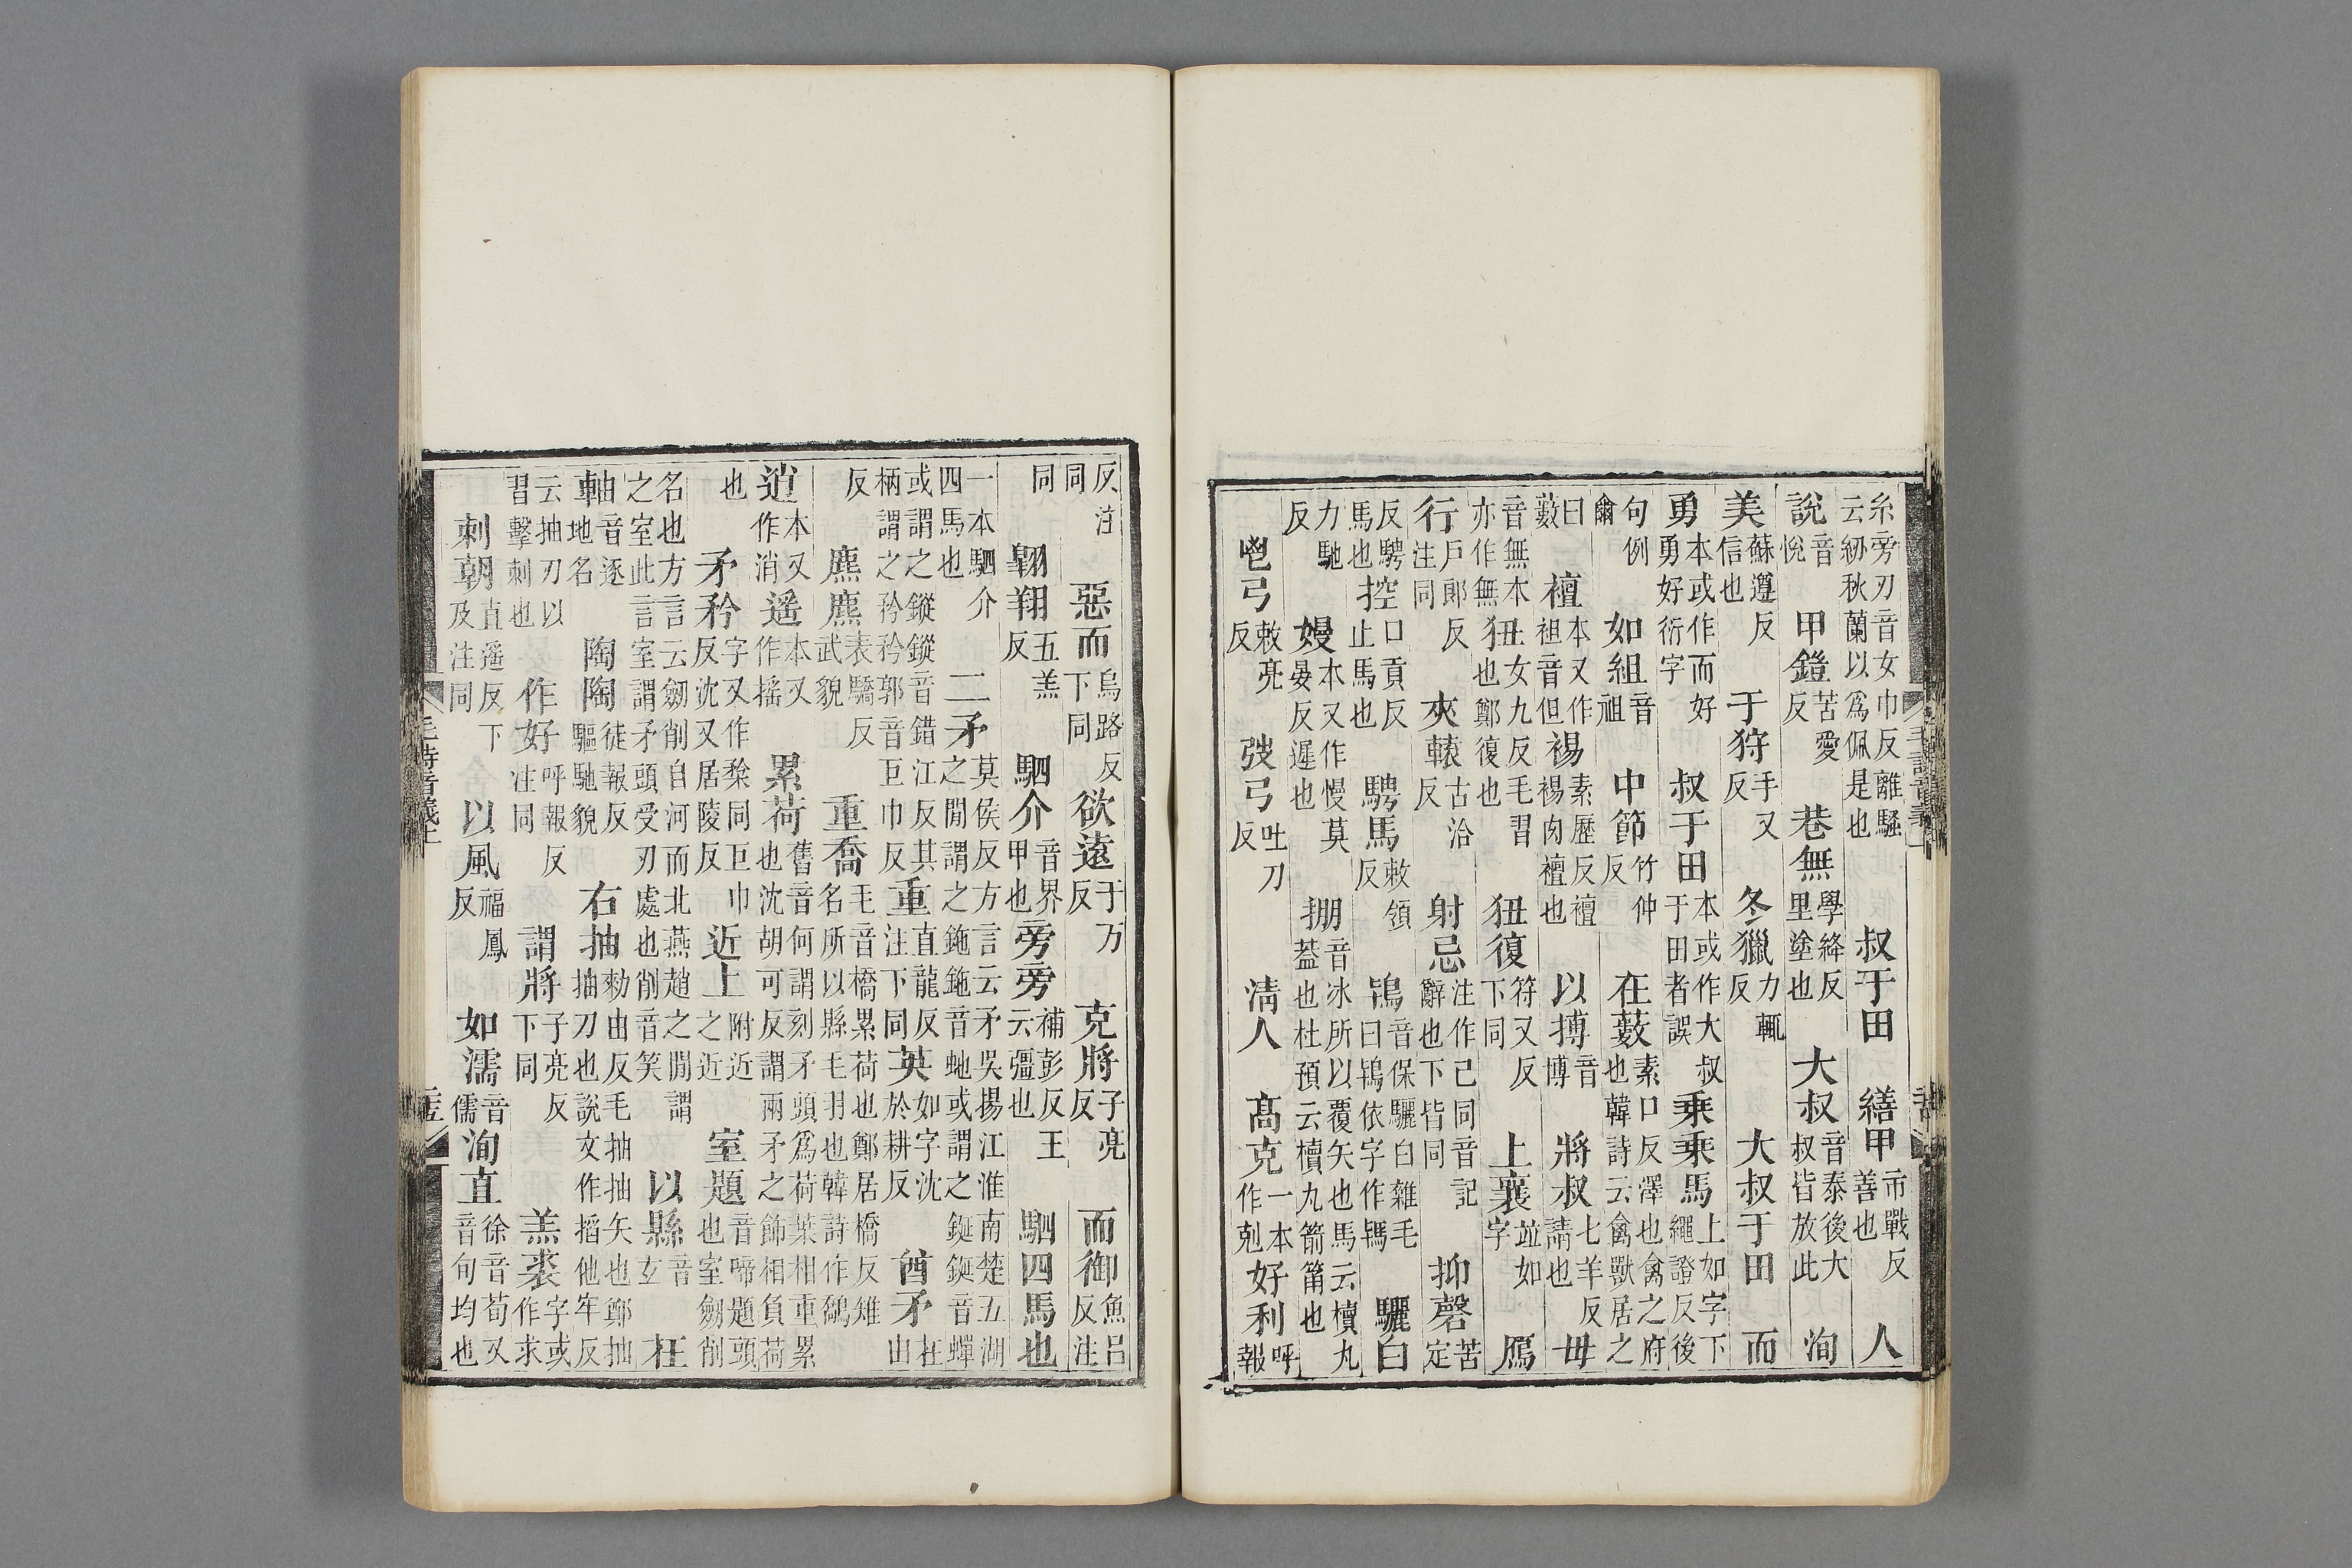 糸旁刃音女巾反離騷云紉秋蘭以爲佩是也 叔于田 繕甲市戰反善也 人
說音悅 甲鎧苦愛反 巷無學絳反里塗也 大叔音泰後大叔皆放此 洵
美蘇遵反信也 于狩手又反 冬獵力輒反 大叔于田 而
勇本或作而好勇好衍字 叔于田本或作大叔于田者誤 乘乘馬上如字下繩證反後
句例爾 如組音祖 中節竹仲反 在藪素口反澤也禽之府也韓詩云禽獸居之
曰藪 襢本又作袒音但 裼素歷反襢裼肉襢也 以搏音博 將叔七羊反請也 毋
音無本亦作無 狃女九反毛習也鄭復也 狃復符又反下同 上襄並如字 鴈
行戶郎反注同 夾轅古洽反 射忌注作己同音記辭也下皆同 抑磬苦定
反騁馬也 控口貢反止馬也 騁馬敕領反 鴇音保驪白雜毛曰鴇依字作𩿢 驪白
力馳反 嫚本又作慢莫晏反遲也 掤音冰所以覆矢也馬云櫝丸蓋也杜預云櫝丸箭筩也
鬯弓敕亮反 弢弓吐刀反 淸人 高克一本作剋 好利呼報
反注同 惡而烏路反下同 欲遠于万反 克將子亮反 而御魚呂反注
同 翱翔五羔反 駟介音界甲也 旁旁補彭反王云彊也 駟四馬也
一本駟介四馬也 二矛莫侯反方言云矛吳揚江淮南楚五湖之閒謂之鉇鉇音虵或謂之鋋鋋音蟬
或謂之鏦鏦音錯江反其柄謂之矜矜郭音巨巾反 重直龍反注下同 英如字沈於耕反 酋矛在由
反 麃麃表驕反武貌 重喬毛音橋累荷也鄭居橋反雉名所以縣毛羽也韓詩作鷮
逍本又作消 遥本又作摇 累荷舊音何謂刻矛頭爲荷葉相重累也沈胡可反謂兩矛之飾相負荷
也 矛矜字又作䅘同巨巾反沈又居陵反 近上附近之近 室題音啼題頭也室劒削
名也方言云劒削自河而北燕趙之閒謂之室此言室謂矛頭受刃處也削音笑 以縣音玄 在
軸音逐地名 陶陶徒報反驅馳貌 右抽勑由反毛抽抽矢也鄭抽抽刀也說文作搯他牢反
云抽刃以習擊刺也 作好呼報反注同 謂將子亮反下同 羔裘字或作求
刺朝直遥反下及注同 以風福鳳反 如濡音儒 洵直徐音荀又音旬均也